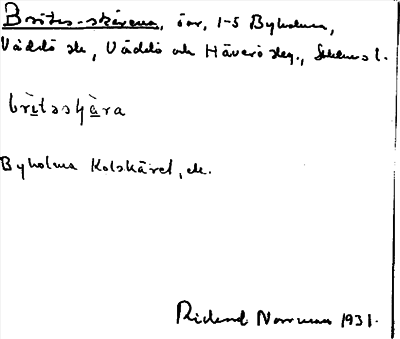 Brites-skärena, öar, 1-5 Byholma,
Väddö sk, Väddö och Häverö skg., Sthlms l.
brìtsskära
Byholma Kolskäret, ek.
Rickard Norrman 1931.